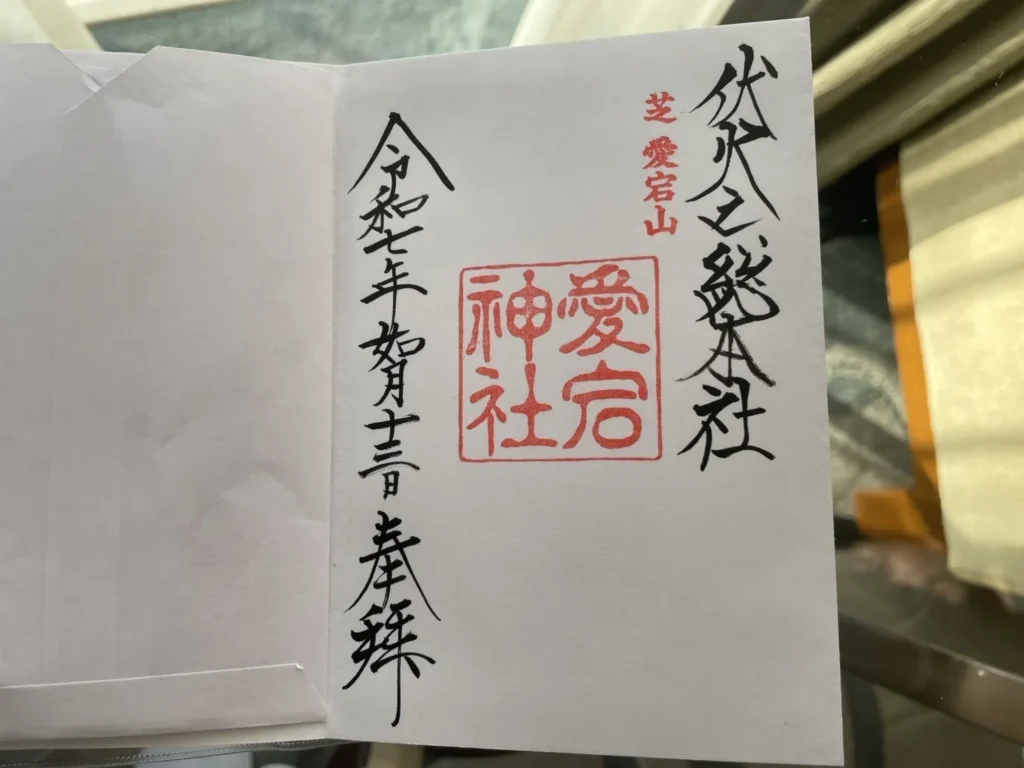 伏火之総本社
芝 愛宕山
愛宕
神社
令和七年如月十三日 奉拝